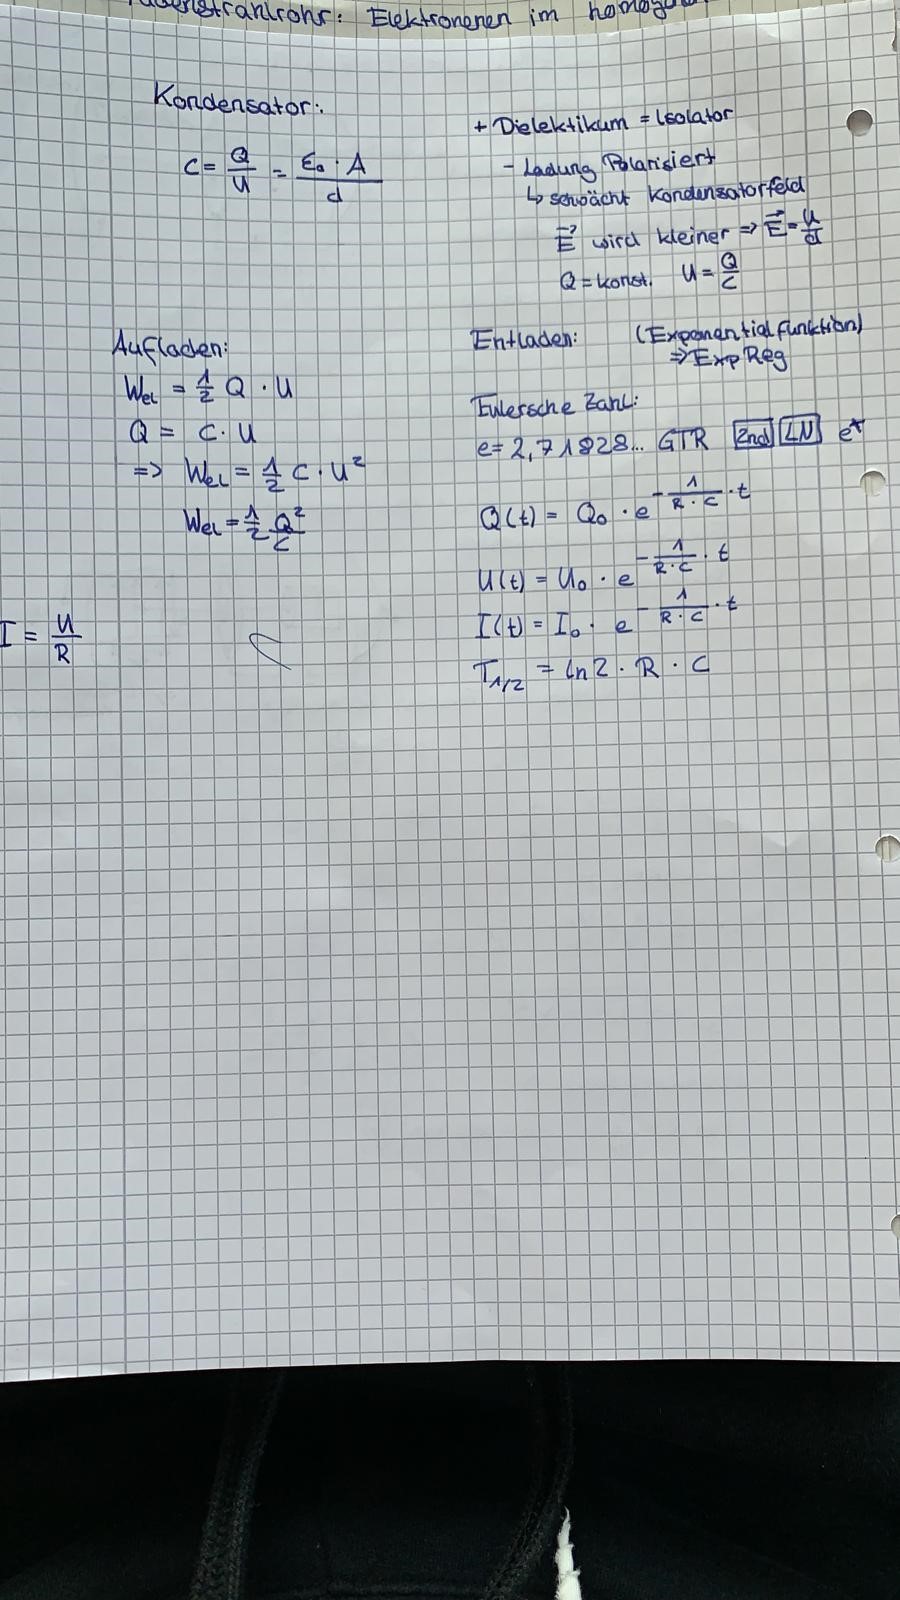 Elektronenen im
Kondensator:
C = Q/U = ε₀ · A / d
+ Dielektikum = Isolator
- Ladung Polarisiert
↳ schwächt Kondensatorfeld
E⃗ wird kleiner ⇒ E⃗ = U/d
Q = konst. U = Q/C
Aufladen:
Wel = 1/2 Q · U
Q = C · U
=> Wel = 1/2 C · U²
Wel = 1/2 Q²/C
I = U/R
Entladen: (Exponentialfunktion)
⇒ Exp Reg
Eulersche Zahl:
e = 2,71828... GTR 2nd LN eˣ
Q(t) = Q₀ · e^(- 1/(R · C) · t)
U(t) = U₀ · e^(- 1/(R · C) · t)
I(t) = I₀ · e^(- 1/(R · C) · t)
T₁/₂ = ln2 · R · C